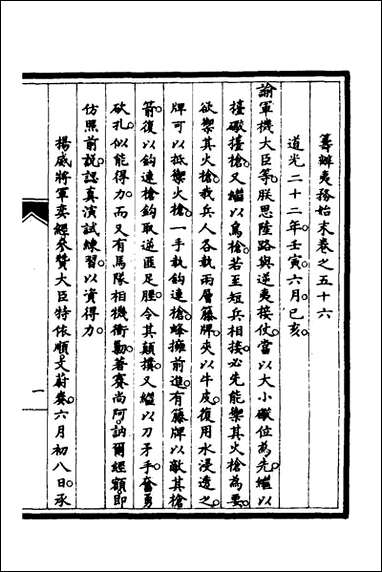 籌辦夷務始末卷之五十六
道光二十二年壬寅六月。己亥。
諭軍機大臣等。朕思陸路與逆夷接仗。當以大小礮位為先。繼以
檯礮檯槍。又繼以鳥槍。若至短兵相接。必先能禦其火槍為要。
欲禦其火槍。我兵人各執兩層籐牌。夾以牛皮。復用水浸透之。
牌可以抵禦火槍。一手執鈎連槍。蜂擁前進。有籐牌以敵其槍
箭。復以鈎連槍鈎取逆匪足脛。令其顛撲。又繼以刀矛手。奮勇
砍扎。似能得力。而又有馬隊相機衝動。著賽尚阿。訥爾經額。即
仿照前說。認真演試練習。以資得力。
揚威將軍奕經參贊大臣特依順。文蔚奏。六月初八日。承
一